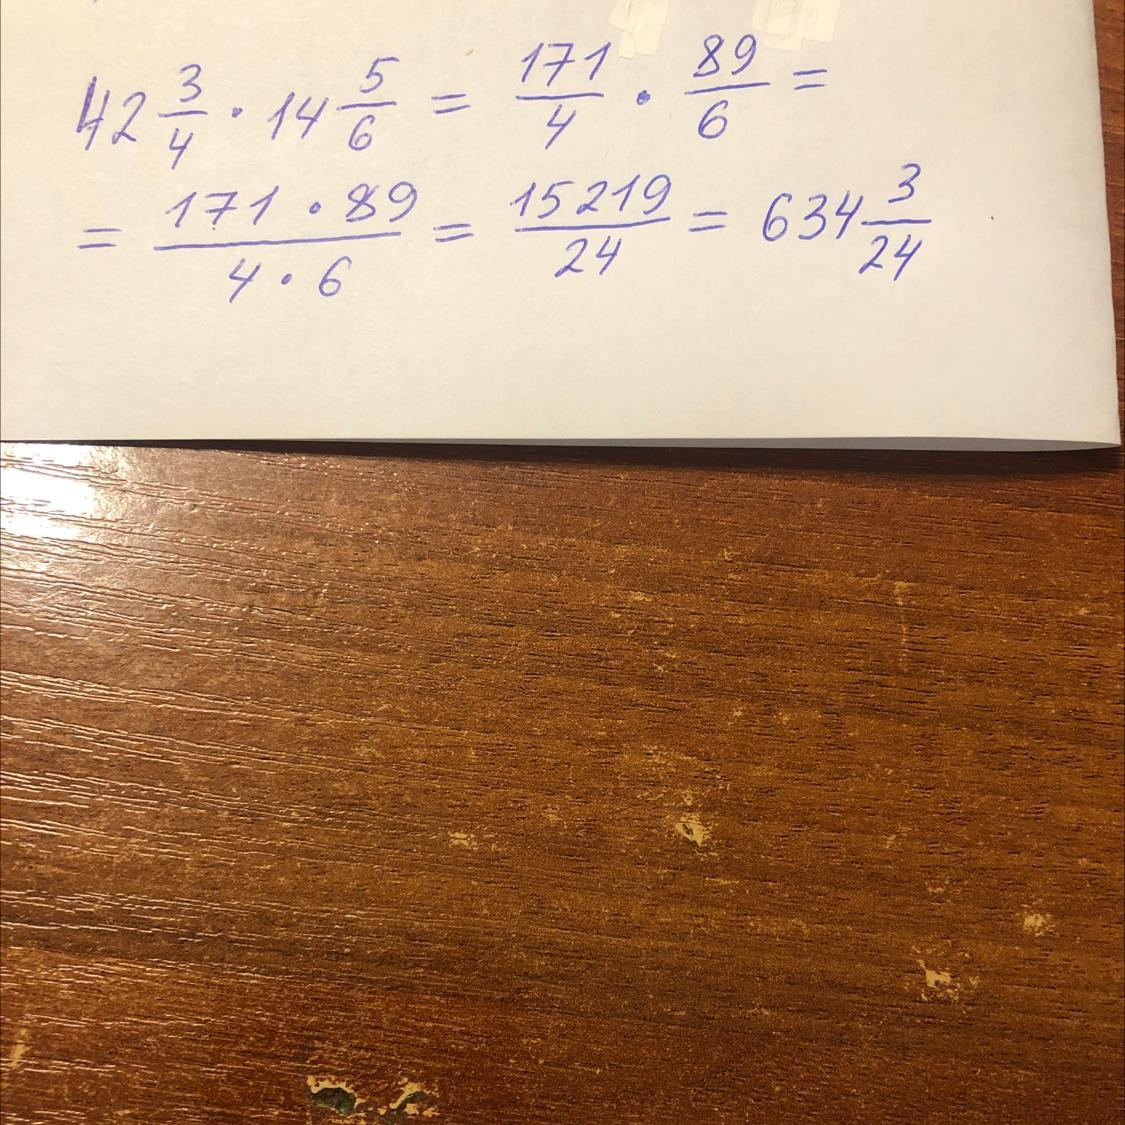 42 3/4 · 14 5/6 = 171/4 · 89/6 =
= 171 · 89/4 · 6 = 15219/24 = 634 3/24